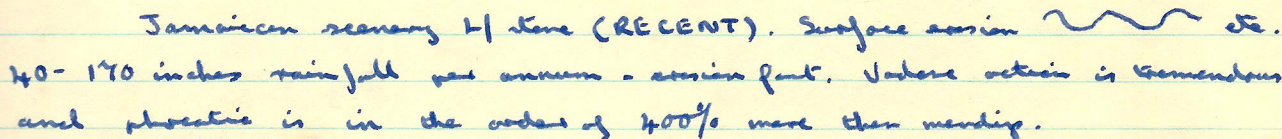 Jamaican scenery L/stone (RECENT). Surface erosion etc.
40-170 inches rainfall per annum - erosion fast. Vadose action is tremendous
and phreatic is in the order of 400% more than mendip.